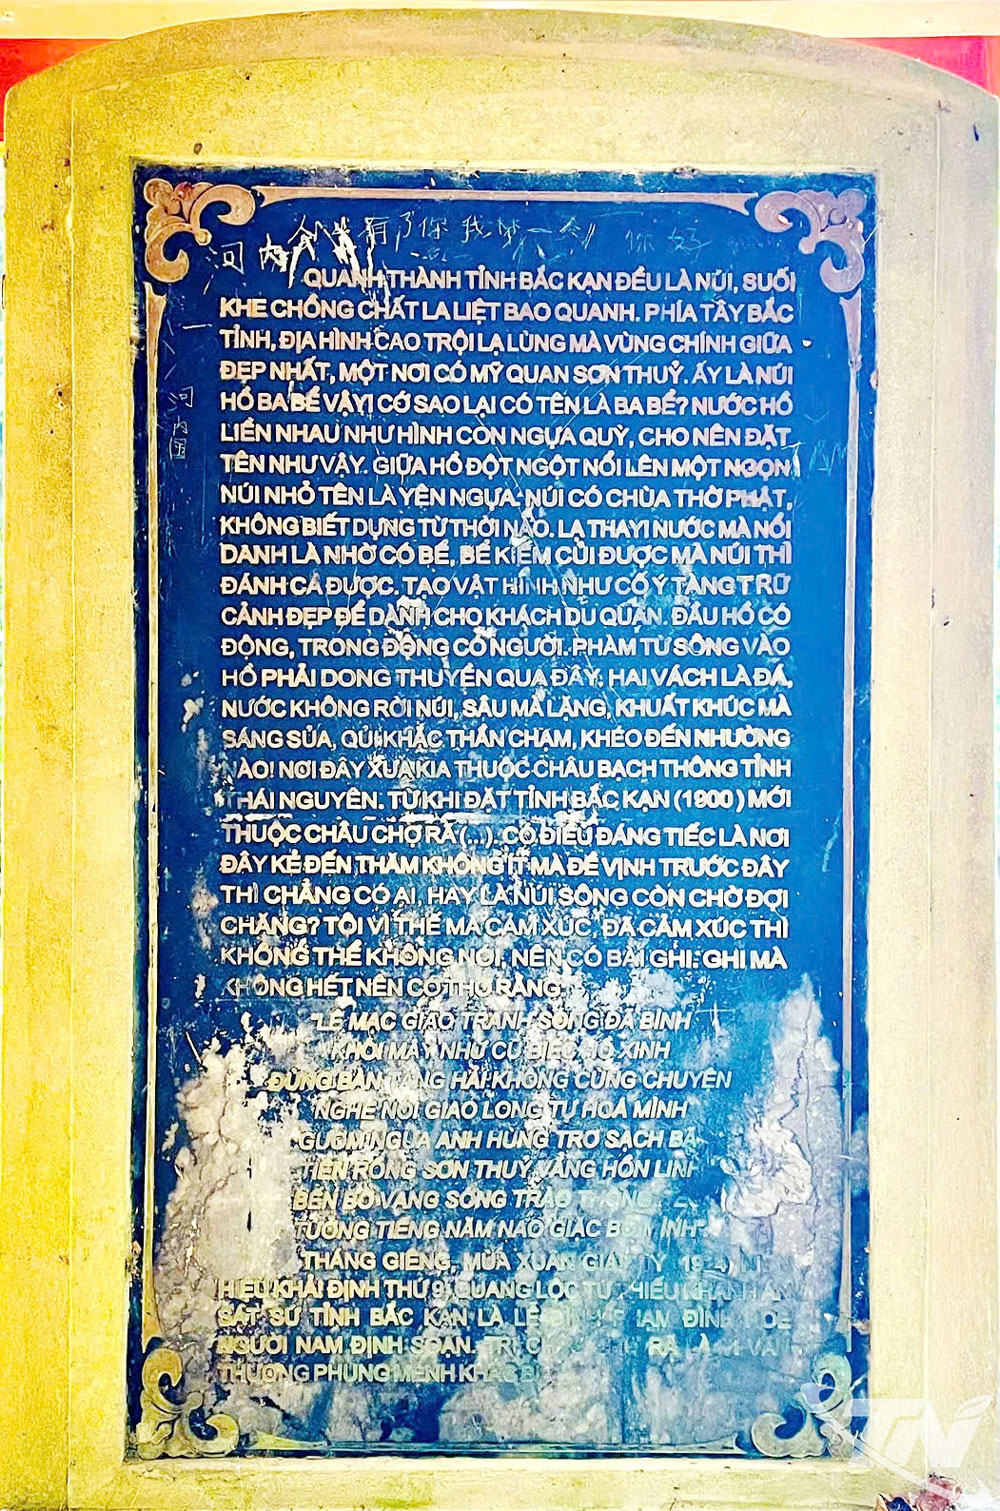 有了你我梦一
你好
河内
QUANH THÀNH TỈNH BẮC KẠN ĐỀU LÀ NÚI, SUỐI
KHE CHỒNG CHẤT LA LIỆT BAO QUANH. PHÍA TÂY BẮC
TỈNH, ĐỊA HÌNH CAO TRỘI LẠ LÙNG MÀ VÙNG CHÍNH GIỮA
ĐẸP NHẤT, MỘT NƠI CÓ MỸ QUAN SƠN THUỶ. ẤY LÀ NÚI
HỒ BA BỂ VẬY! CỚ SAO LẠI CÓ TÊN LÀ BA BỂ? NƯỚC HỒ
河内
LIỀN NHAU NHƯ HÌNH CON NGỰA QUỲ, CHO NÊN ĐẶT
TÊN NHƯ VẬY. GIỮA HỒ ĐỘT NGỘT NỔI LÊN MỘT NGỌN
NÚI NHỎ TÊN LÀ YÊN NGỰA. NÚI CÓ CHÙA THỜ PHẬT,
KHÔNG BIẾT DỰNG TỪ THỜI NÀO. LẠ THAY! NƯỚC MÀ NỔI
DANH LÀ NHỜ CÓ BỂ, BỂ KIẾM CỦI ĐƯỢC MÀ NÚI THÌ
ĐÁNH CÁ ĐƯỢC. TẠO VẬT HÌNH NHƯ CỐ Ý TÀNG TRỮ
CẢNH ĐẸP ĐỂ DÀNH CHO KHÁCH DU QUAN. ĐẦU HỒ CÓ
ĐỘNG, TRONG ĐỘNG CÓ NGƯỜI. PHÀM TỪ SÔNG VÀO
HỒ PHẢI DONG THUYỀN QUA ĐÂY. HAI VÁCH LÀ ĐÁ,
NƯỚC KHÔNG RỜI NÚI, SÂU MÀ LẶNG, KHUẤT KHÚC MÀ
SÁNG SỦA, QUỈ KHẮC THẦN CHẠM, KHÉO ĐẾN NHƯỜNG
NÀO! NƠI ĐÂY XƯA KIA THUỘC CHÂU BẠCH THÔNG TỈNH
THÁI NGUYÊN. TỪ KHI ĐẶT TỈNH BẮC KẠN (1900) MỚI
THUỘC CHÂU CHỢ RÃ (...). CÓ ĐIỀU ĐÁNG TIẾC LÀ NƠI
ĐÂY KẺ ĐẾN THĂM KHÔNG ÍT MÀ ĐỀ VỊNH TRƯỚC ĐÂY
THÌ CHẲNG CÓ AI, HAY LÀ NÚI SÔNG CÒN CHỜ ĐỢI
CHĂNG? TÔI VÌ THẾ MÀ CẢM XÚC, ĐÃ CẢM XÚC THÌ
KHÔNG THỂ KHÔNG NÓI, NÊN CÓ BÀI GHI. GHI MÀ
KHÔNG HẾT NÊN CÓ THƠ RẰNG
"LÊ MẠC GIAO TRANH SÓNG ĐÃ BÌNH
KHÓI MÂY NHƯ CŨ BIẾC HỒ XINH
ĐỪNG BÀN TANG HẢI KHÔNG CÙNG CHUYỆN
NGHE NÓI GIAO LONG TỰ HOÁ MÌNH
GƯƠM NGỰA ANH HÙNG TRƠ SẠCH
TIÊN RỒNG SƠN THUỶ VẲNG HỒN LINH
BÊN BỜ VẲNG SÓNG TRÀO
TƯỞNG TIẾNG NĂM NÀO GIẶC
THÁNG GIÊNG, MÙA XUÂN GIÁP TÝ
HIỆU KHẢI ĐỊNH THỨ 9, QUANG LỘC TỰ THIẾU KHANH ÁN
SÁT SỨ TỈNH BẮC KẠN LÀ LÊ ĐÌNH
NGƯỜI NAM ĐỊNH SOẠN. TRI RÃ LÀ
THƯỢNG PHỤNG MỆNH KHẮC
TN